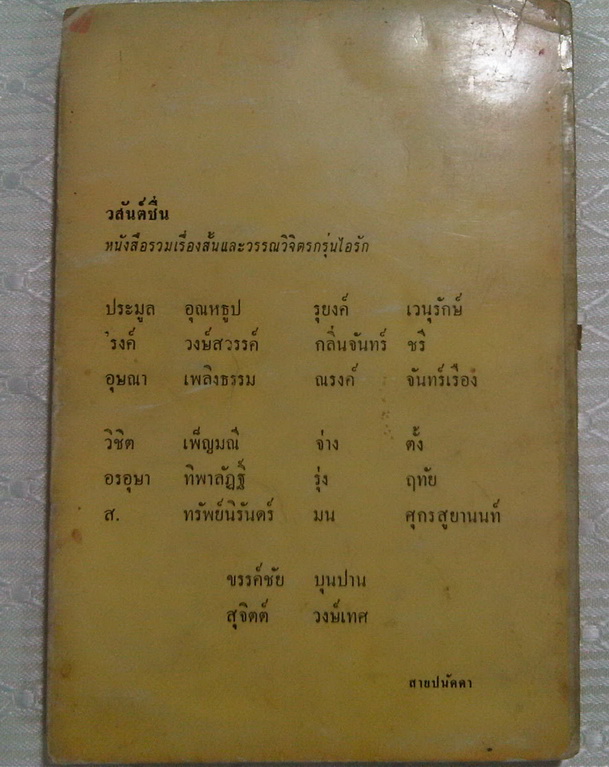 วสันต์ชื่น
หนังสือรวมเรื่องสั้นและวรรณวิจิตรกรุ่นไอรัก
ประมูล อุณหธูป รุยงค์ เวนุรักษ์
'รงค์ วงษ์สวรรค์ กลิ่นจันทร์ ชรี
อุษณา เพลิงธรรม ณรงค์ จันทร์เรือง
วิชิต เพ็ญมณี จ่าง ตั้ง
อรอุษา ทิพาลัฏฐ์ รุ่ง ฤทัย
ส. ทรัพย์นิรันดร์ มน ศุกรสูยานนท์
ขรรค์ชัย บุนปาน
สุจิตต์ วงษ์เทศ
สายปนัดดา